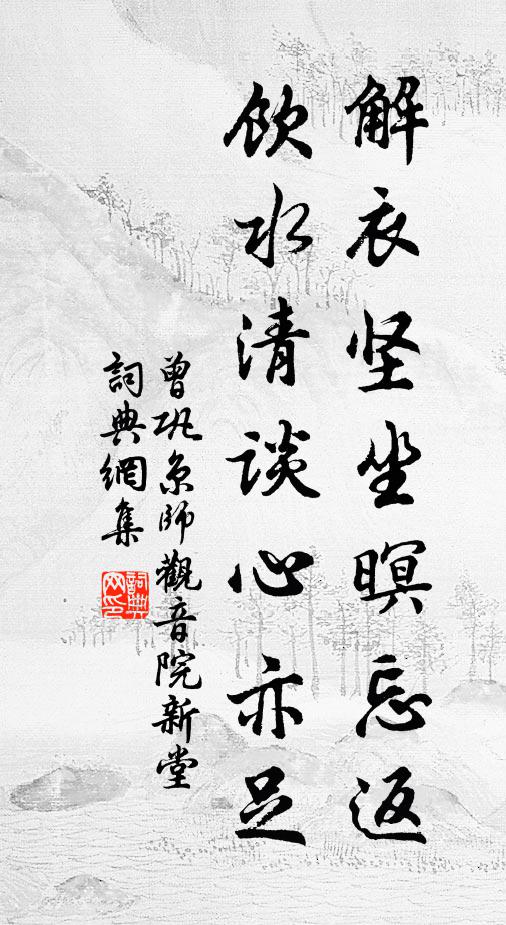 解衣坚坐暝忘返
飲水清談心亦足
曾巩京師觀音院新堂
詞典網集
詞典网印